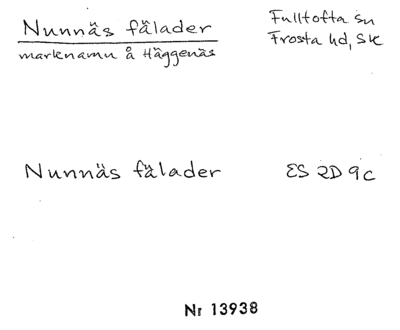 Nunnäs fälader
marknamn å Häggenäs
Fulltofta sn
Frosta hd, Sk
Nunnäs fälader
ES 2D 9c
Nr 13938